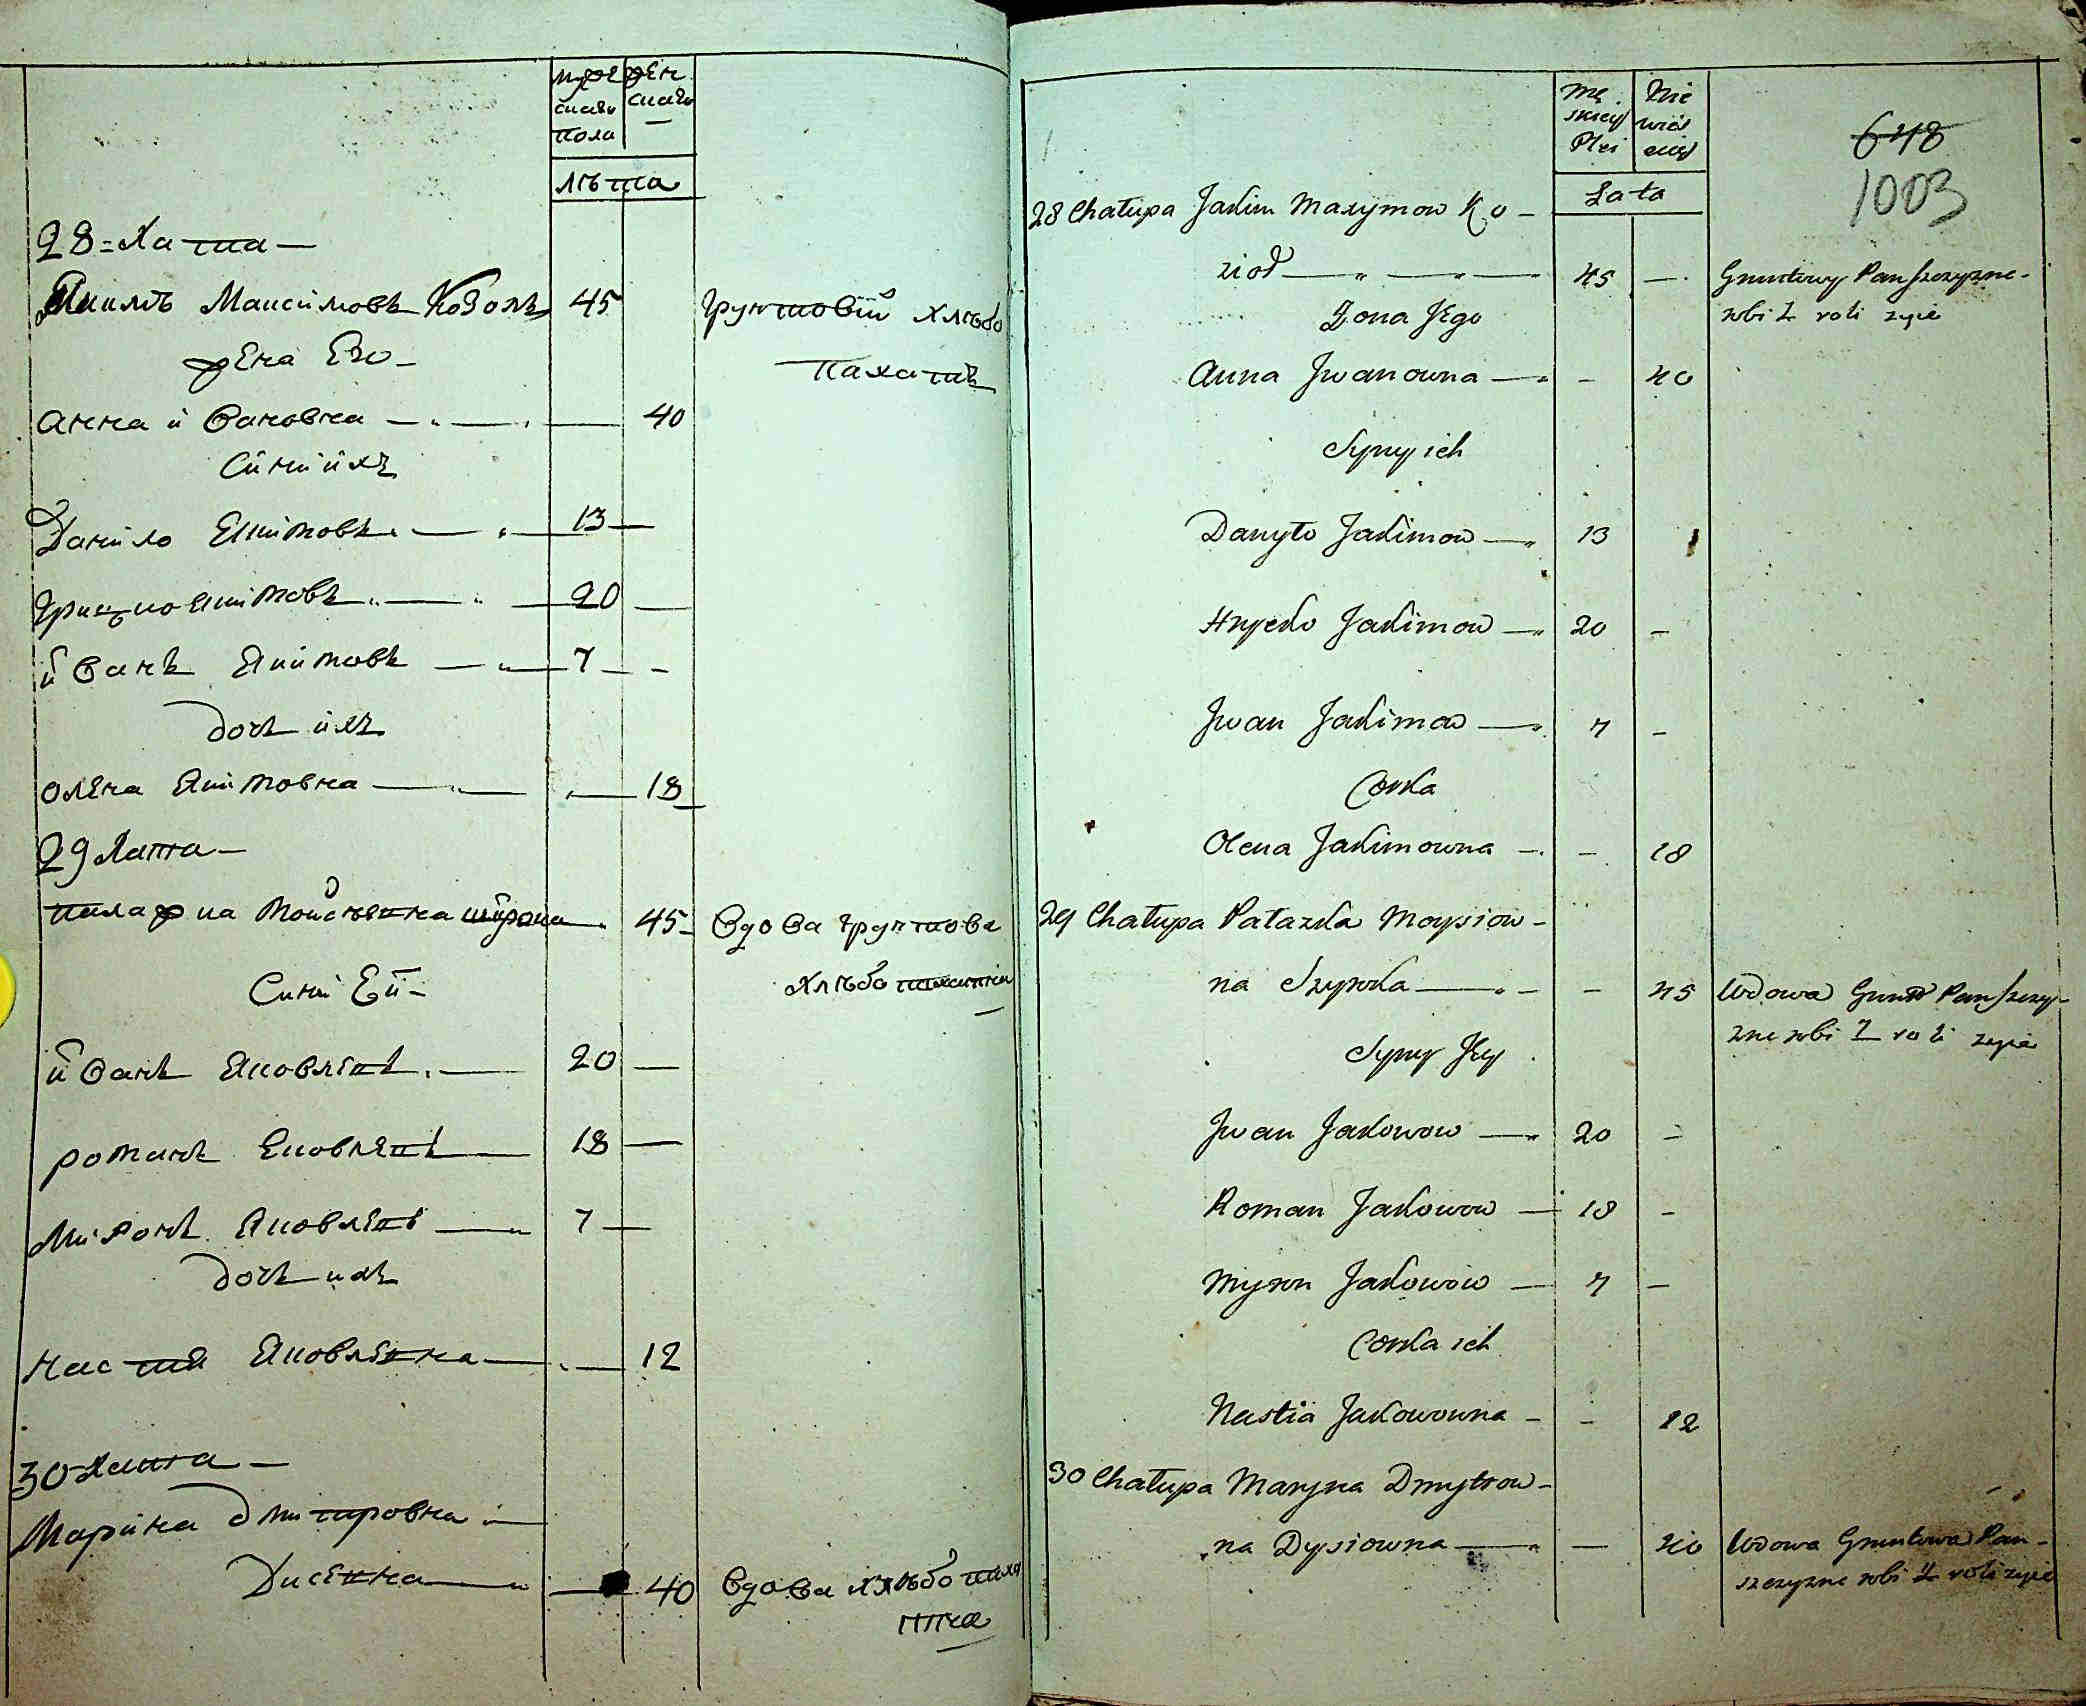 муже жен
скаго скаго
пола
лѣта
28 = Хата —
Якимъ Максимовъ Козолъ 45 грунтовій хлѣбо
жена Его — пахатъ
Анна йвановна — 40
Сини ихъ
Данило Якимовъ — 13 —
Грицко Якимовъ — 20 —
йванъ Якимовъ — 7 — -
дочь ихъ
олена Якимовна — 18
29 Хата —
палажка Мойсѣевна 45 Вдова грунтова
Сини Ей — хлѣбо
йванъ Яковлевъ — 20 —
романъ Яковлевъ — 18 —
Миронъ Яковлевъ — 7 —
дочь ихъ
настия Яковлевна — 12
30 Хата —
Марина дмитровна —
— 40 Вдова хлѣбо паха
тна
Mę Nie
skiey wieś
Płci ciey
Lata
648
1003
28 Chałupa Jakim Maxymow Ko -
zioł — 45 — Gruntowy Panszczyzne -
Zona Jego robi Z roli zyie
Anna Jwanowna — - 40
Synyich
Danyło Jakimow — 13
Hryćko Jakimow — 20 -
Jwan Jakimow — 7 -
Corka
Olena Jakimowna - - 18
29 Chałupa Pałazka Moysiow -
na Szyrka — - 45 Wdowa Grunt Panszczy-
Syny Jey zne robi Z roli zyie
Jwan Jakowow — 20 -
Roman Jakowow — 18 -
Myron Jakowow — 7 -
Corka ich
Nastia Jakowowna - - 12
30 Chałupa Maryna Dmytrow -
na Dysiowna — — 40 Wdowa Gruntowa Pan -
szczyzne robi Z roli zyie